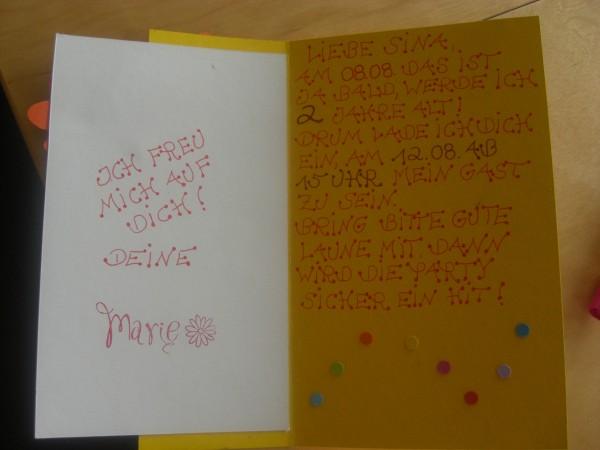 ICH FREU
MICH AUF
DICH!
DEINE
Marie
LIEBE SINA,
AM 08.08. DAS IST
JA BALD, WERDE ICH
2 JAHRE ALT!
DRUM LADE ICH DICH
EIN, AM 12.08. AB
15 UHR MEIN GAST
ZU SEIN.
BRING BITTE GUTE
LAUNE MIT, DANN
WIRD DIE PARTY
SICHER EIN HIT!